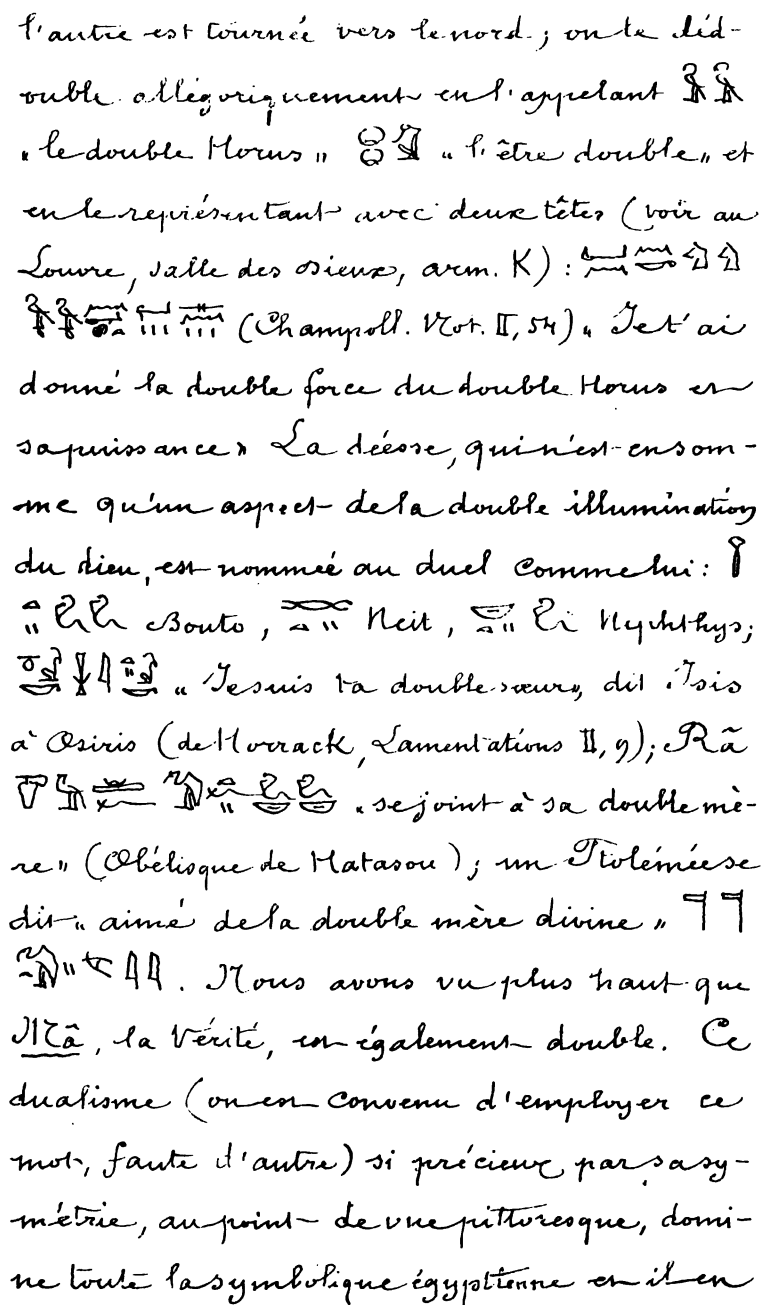 l'autre est tournée vers le nord ; on le déd-
ouble allégoriquement en l'appelant
« le double Horus » « l'être double » et
en le représentant avec deux têtes (voir au
Louvre, salle des Dieux, arm. K) :
(Champoll. Not. II, 54) « Je t'ai
donné la double force du double Horus et
sa puissance » La déesse, qui n'est en som-
me qu'un aspect de la double illumination
du dieu, est nommée au duel comme lui :
Bouto, Neit, Nephthys ;
« Je suis ta double sœur », dit Isis
à Osiris (de Horrack, Lamentations II, 9) ; Râ
« se joint à sa double mè-
re » (Obélisque de Hatasou) ; un Ptolémée se
dit « aimé de la double mère divine »
. Nous avons vu plus haut que
Mâ, la Vérité, est également double. Ce
dualisme (on est convenu d'employer ce
mot, faute d'autre) si précieux par sa sy-
métrie, au point de vue pittoresque, domi-
ne toute la symbolique égyptienne et il en